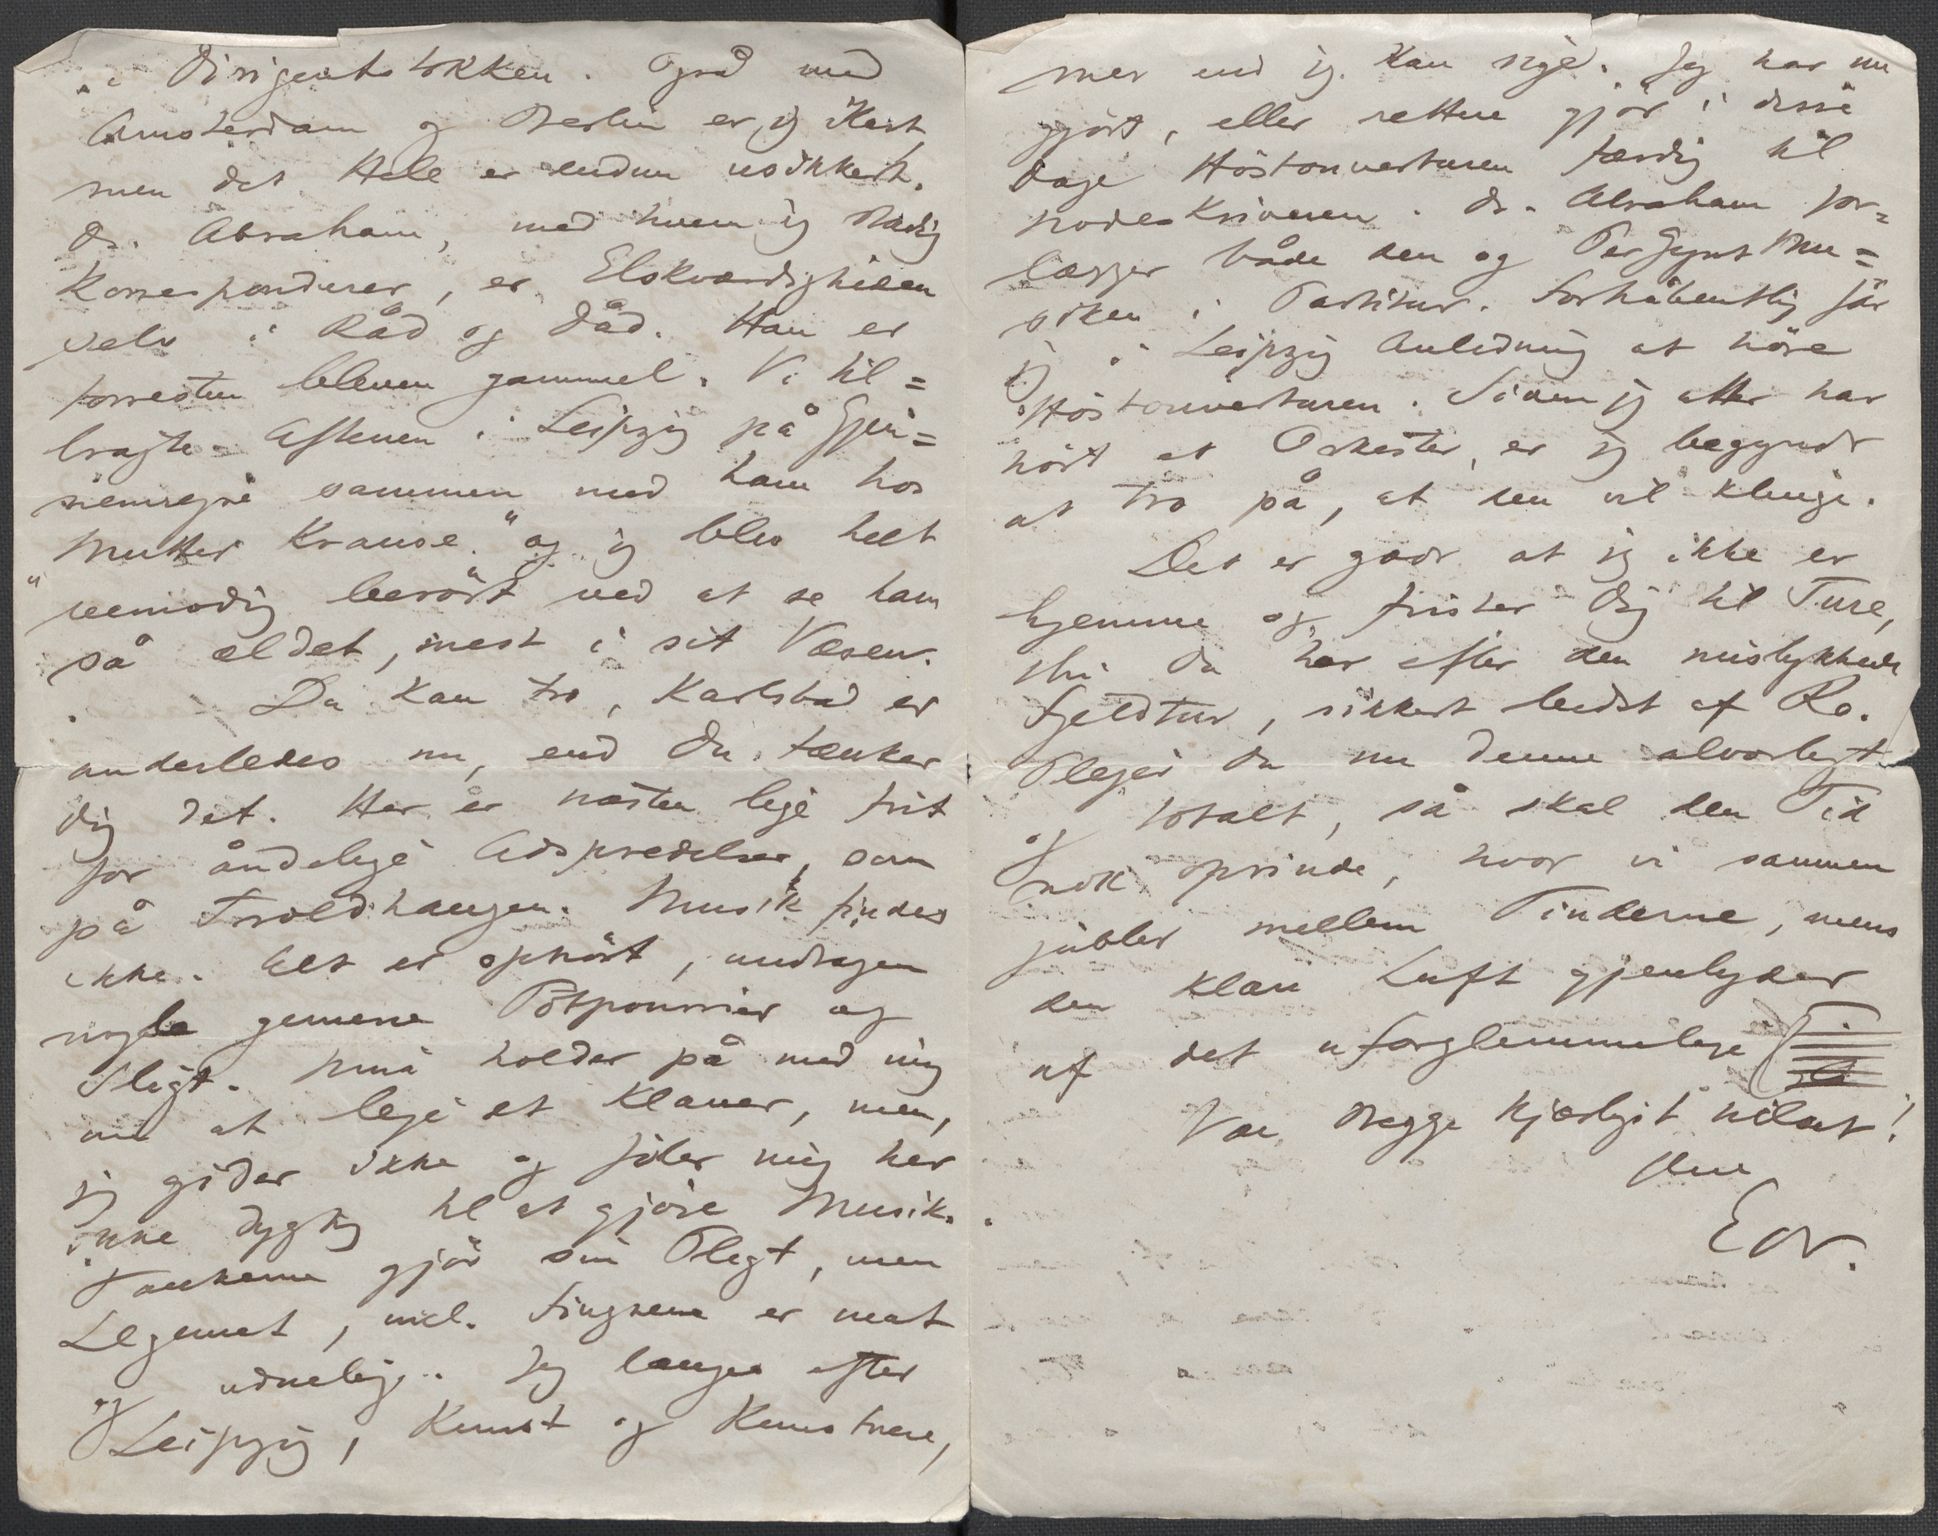 i Dirigentstokken. Også med
Amsterdam og Berlin er jeg
men det Hele er endnu usikkert.
Dr. Abraham, med hvem jeg stadig
korresponderer, er Elskværdigheden
selv i Råd og Dåd. Han er
forresten bleven gammel. Vi til=
bragte Aftenen i Leipzig på Gjen=
nemrejse sammen med ham hos
"Mutter Krause." og jeg blev helt
vemodig berört ved at se ham
så ældet, mest i sit Væsen.
Du kan tro, Karlsbad er
anderledes nu, end Du tænker
Dig det. Her er næsten lige frit
for åndelige Adspredelser, som
på Troldhaugen. Musik findes
ikke. Alt er ophört, undtagen
nogle gemene Potpourrier og
Sligt. Nina holder på med mig
om at leje et Klaver, men,
jeg gider ikke og föler mig her
ikke dygtig til at gjöre Musik.
Tankerne gjör sin Pligt, men
Legemet, incl. Fingrene er mat
og udueligt. Jeg længes efter
Leipzig, Kunst og Kunstnere,
mer end jeg kan sige. Jeg har nu
gjort, eller rettere gjör i disse
Dage Höstouverturen færdig til
Nodeskriveren. Dr. Abraham for=
lægger både den og Per Gynt Mu=
siken i Partitur. Forhåbentlig får
jeg i Leipzig Anledning at höre
Höstouverturen. Siden jeg atter har
hört et Orkester, er jeg begyndt
at tro på, at den vil klinge.
Det er godt at jeg ikke er
hjemme og frister Dig til Ture,
thi Du har efter den mislykkede
Fjeldtur, sikkert bedst af Ro.
Plejer Du nu denne alvorligt
og totalt, så skal den Tid
nok oprinde, hvor vi sammen
jubler mellem Tinderne, mens
den klare Luft gjenlyder
af det uforglemmelige
Vær Begge kjærligst hilset!
Din
Edv.